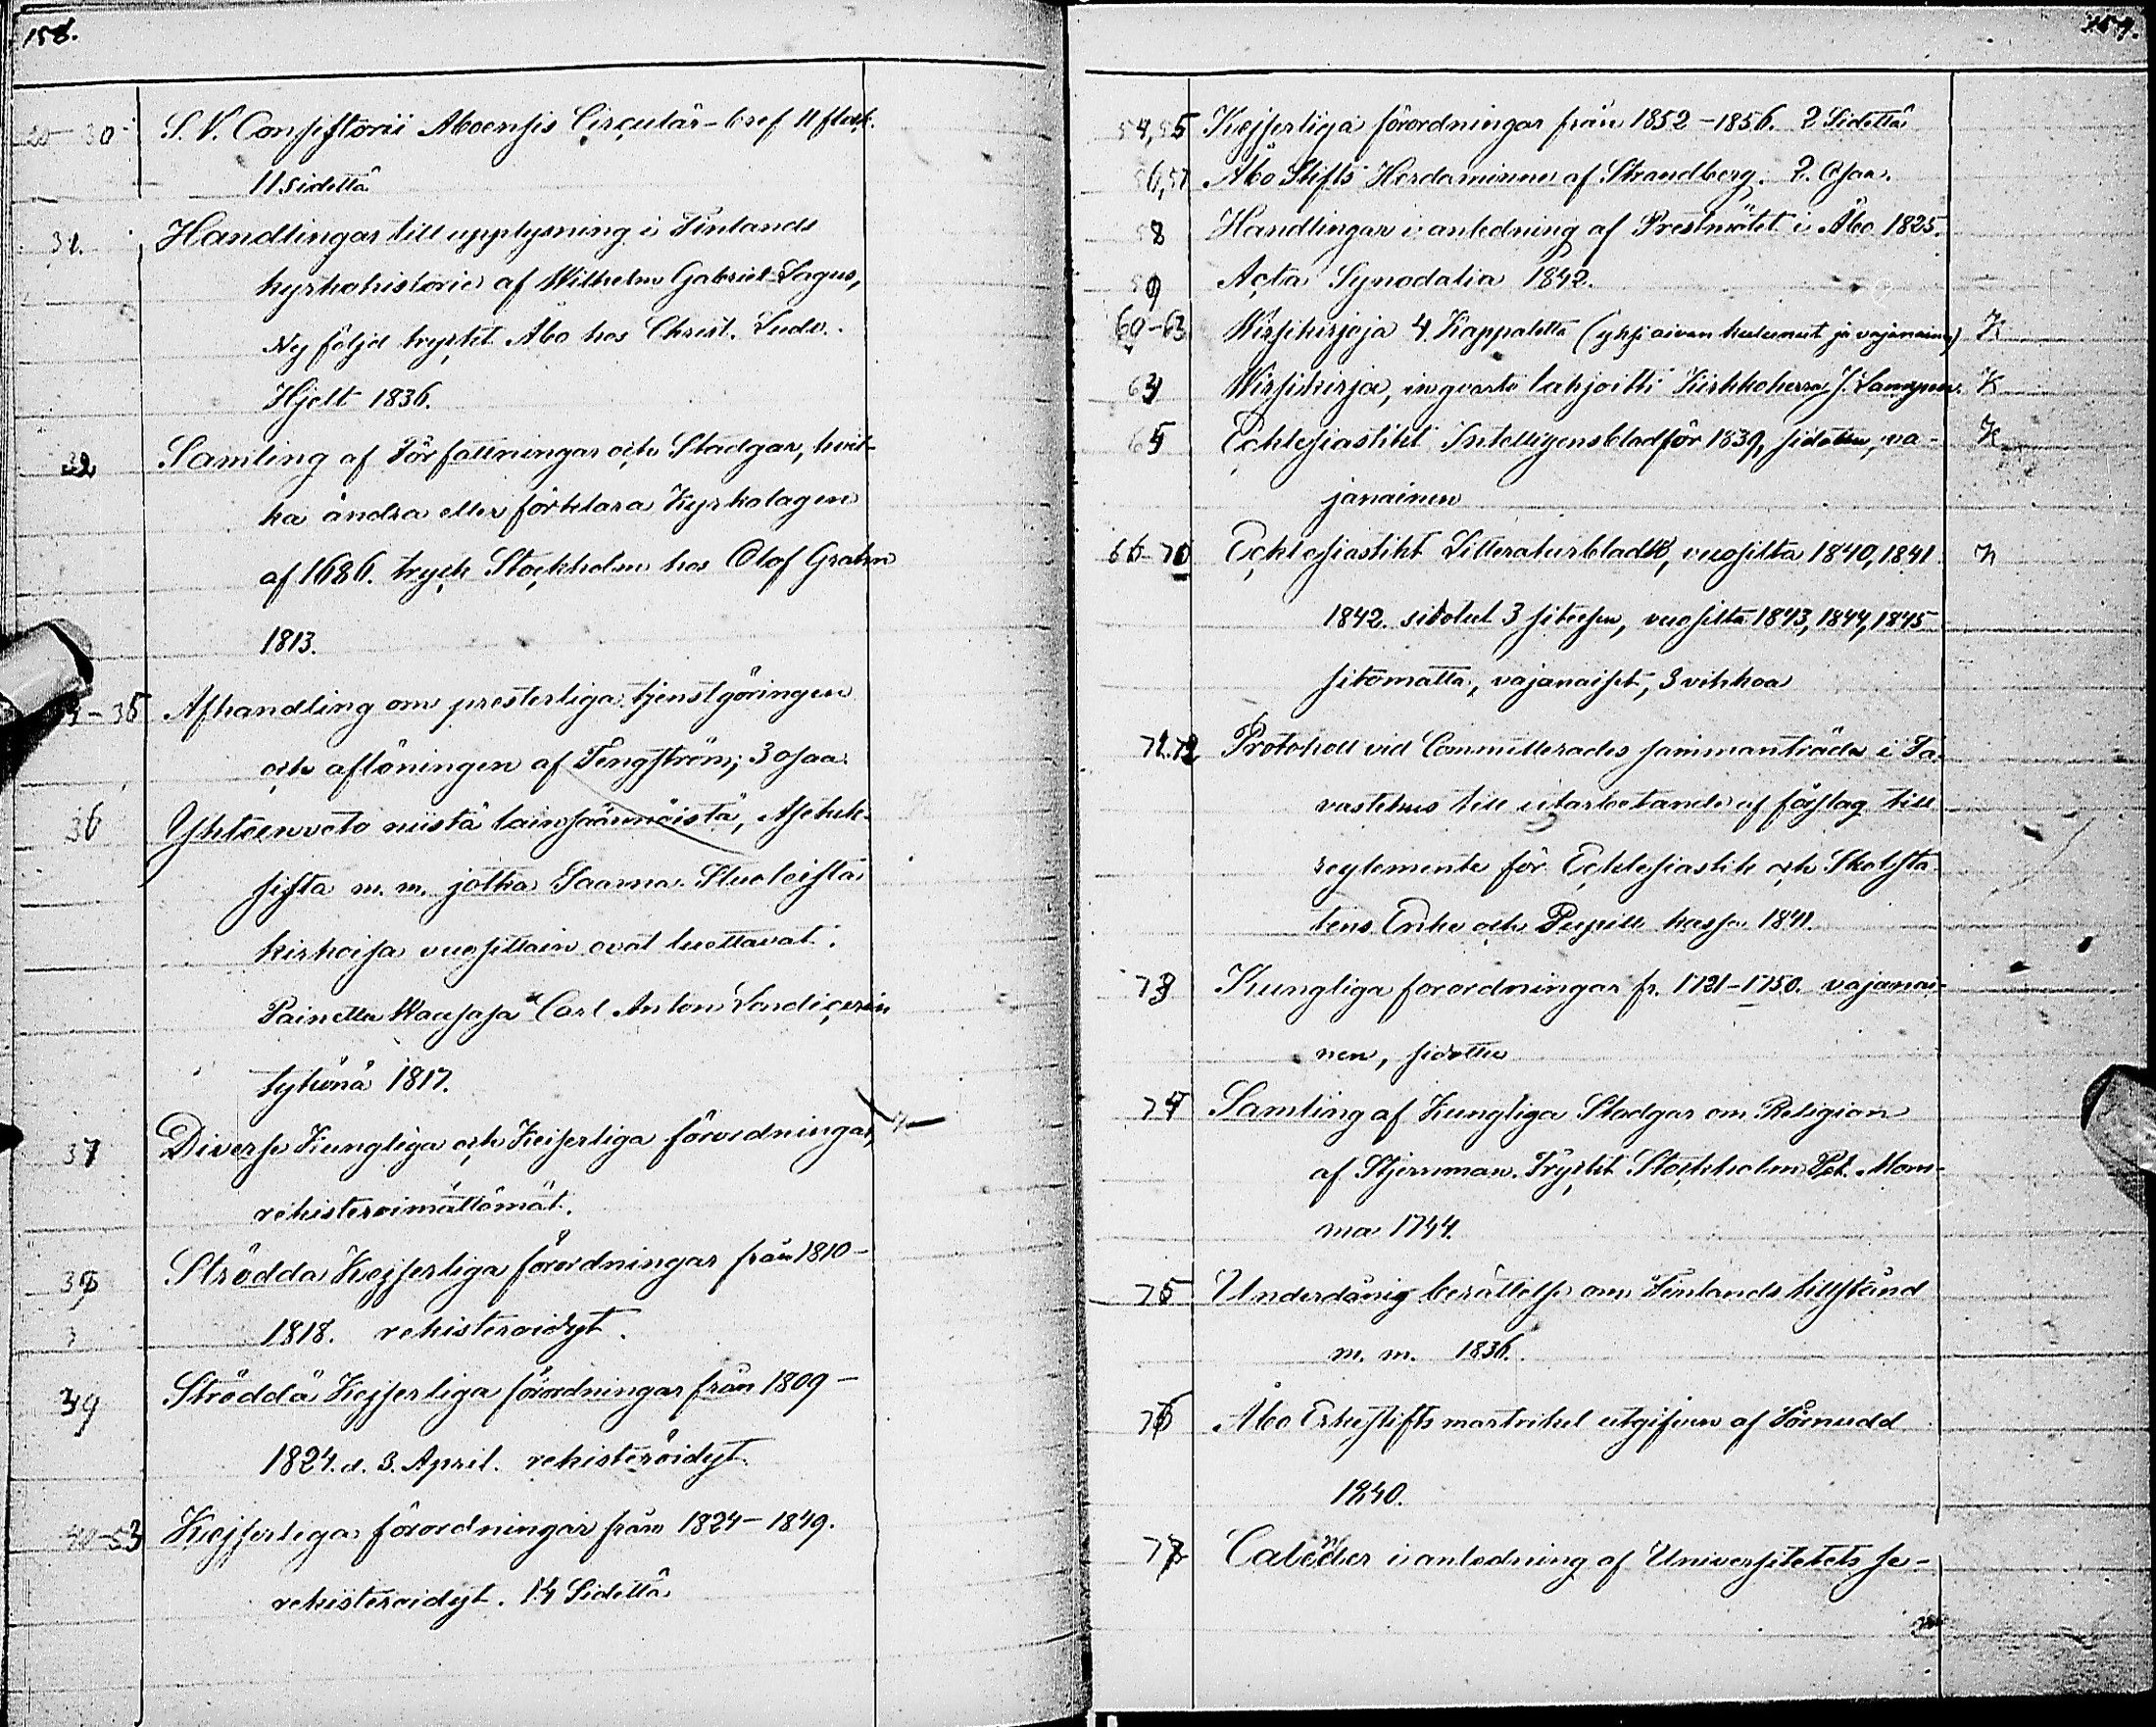 158.
20-30 S. V. Consistorii Aboensis Circulär-bref 11 stuck.
11 sidettä
31. Handlingar till upplysning i Finlands
kyrkohistorie af Wilhelm Gabriel Lagus,
Ny följd tryckt Åbo hos Christ. Ludv.
Hjelt 1836.
32 Samling af Författningar och Stadgar, hvil-
ka ändra eller förklara Kyrkolagen
af 1686. tryck Stockholm hos Olof Grahn
1813.
-35 Afhandling om presterliga tjenstgöringen
och aflöningen af Tengström; 3 osaa.
36 Yhteenveto niistä lainsäännöistä, Asetuk-
sista m. m. jotka Saarna Stuoleista
kirkoisa vuosittain ovat luettavat.
Painettu Waasasa Carl Anton Londicerin
tykönä 1817.
37 Diverse Kungliga och Keiserliga förordningar,
rekisteroimättömät.
38 Strödda Kejserliga förordningar från 1810-
1818. rekisteroidyt.
39 Strödda Kejserliga förordningar från 1809-
1824. d. 3. April. rekisteröidyt
40-53 Kejserliga förordningar från 1824-1849.
rekisteroidyt. 14 Sidettä
159.
54,55 Kejserliga förordningar från 1852-1856. 2 Sidettä
56,57 Åbo Stifts Herdaminne af Strandberg. 2. Osaa.
58 Handlingar i anledning af Prestmötet i Åbo 1825.
59 Acta Synodalia 1842.
60-63 Wirsikirjoja 4. Kappaletta (yksi aivan kulunut ja vajanainen) K
64 Wirsikirja, inqvarto lahjoitti Kirkkoherra J. Lampen. K
65 Ecklesiastikt Intelligensblad för 1839, sidottu, va- K
janainen
66-70 Ecklesiastikt Litteraturbladet, vuosilta 1840, 1841 K
1842. sidotut 3 siteesen, vuosilta 1843, 1844, 1845
sitomatta, vajanaiset, 3 vihkoa
71.72 Protokoll vid Committerades sammanträde i Ta-
vastehus till utarbetande af förslag till
reglemente för Ecklesiastik och Skolsta-
tens Enke och Pupill kassa 1841.
73 Kungliga forordningar fr. 1721-1750. vajanai-
nen, sidottu
74 Samling af Kungliga Stadgar om Religion
af Stjernman. Tryckt Stockholm Pet. Mom-
ma 1744.
75 Underdånig berättelse om Finlands tillstånd
m. m. 1836.
76 Åbo Erkestifts martrikel utgifven af Törnudd
1840.
77 Calender i anledning af Universitetets se-